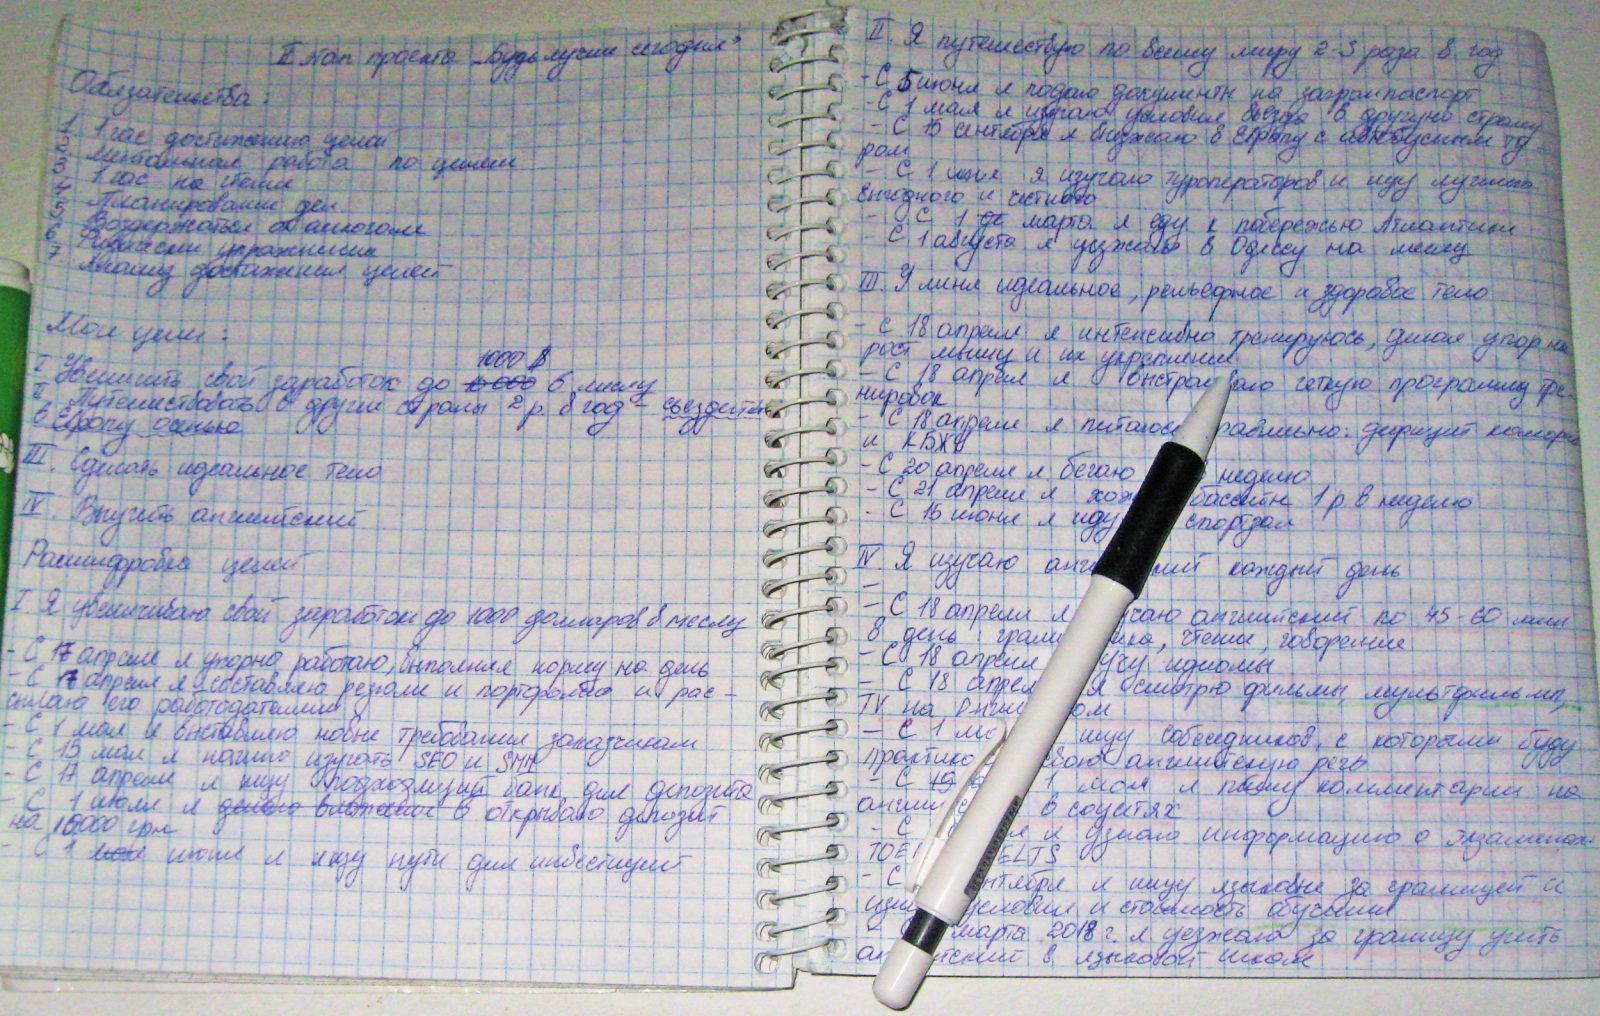 II этап проекта „Будь лучше сегодня"
Обязательства:
1. 1 час достижению целей
2. Ментальная работа по целям
3. 1 час на чтение
4. Планирование дел
5. Воздержаться от алкоголя
6. Физические упражнения
7. Анализ достижения целей
Мои цели:
1000 $
I Увеличить свой заработок до 10 000 в месяц
II Путешествовать в другие страны 2 р. в год – съездить
в Европу осенью
III. Сделать идеальное тело
IV. Выучить английский
Расшифровка целей
I. Я увеличиваю свой заработок до 1000 долларов в месяц
- С 17 апреля я упорно работаю, выполняя норму на день
- С 17 апреля я составляю резюме и портфолио и рас-
сылаю его работодателям
- С 1 мая я выставляю новые требования заказчикам
- С 15 мая я начну изучать SEO и SMM
- С 17 апреля я ищу подходящий банк для депозита
- С 1 июля я открываю депозит
на 15000 грн
- С 1 мая июня я ищу пути для инвестиций
II. Я путешествую по всему миру 2-3 раза в год
- С 5 июня я подаю документы на загранпаспорт
- С 1 мая я изучаю условия въезда в другую страну
- С 15 сентября я выезжаю в Европу с автобусным ту-
ром
- С 1 июля я изучаю туроператоров и ищу лучшего
выгодного и честного
- С 1 марта я еду к побережью Атлантики
- С 1 августа я уезжаю в Одессу на месяц
III. У меня идеальное, рельефное и здоровое тело
- С 18 апреля я интенсивно тренируюсь, делая упор на
рост мышц и их укрепление
- С 18 апреля я выстраиваю четкую программу тре-
нировок
- С 18 апреля я питаюсь правильно: дефицит калорий
и КБЖУ
- С 20 апреля я бегаю неделю
- С 21 апреля я бассейн 1 р. в неделю
- С 15 июня я иду спортзал
IV. Я изучаю английский каждый день
-
- С 18 апреля я изучаю английский по 45-60 мин
в день грамматика, чтение, говорение
- С 18 апреля учу идиомы
- С 18 апреля я смотрю фильмы, мультфильмы,
TV на английском
- С 1 ищу собеседников, с которыми буду
практиковать свою английскую речь
- С 1 мая я пишу комментарии на
английском в соцсетях
- С я узнаю информацию о экзаменах
TOEFL IELTS
- С сентября я ищу языковые за границей и
изучаю условия и стоимость обучения
- С марта 2018 г. я уезжаю за границу учить
английский в языковой школе